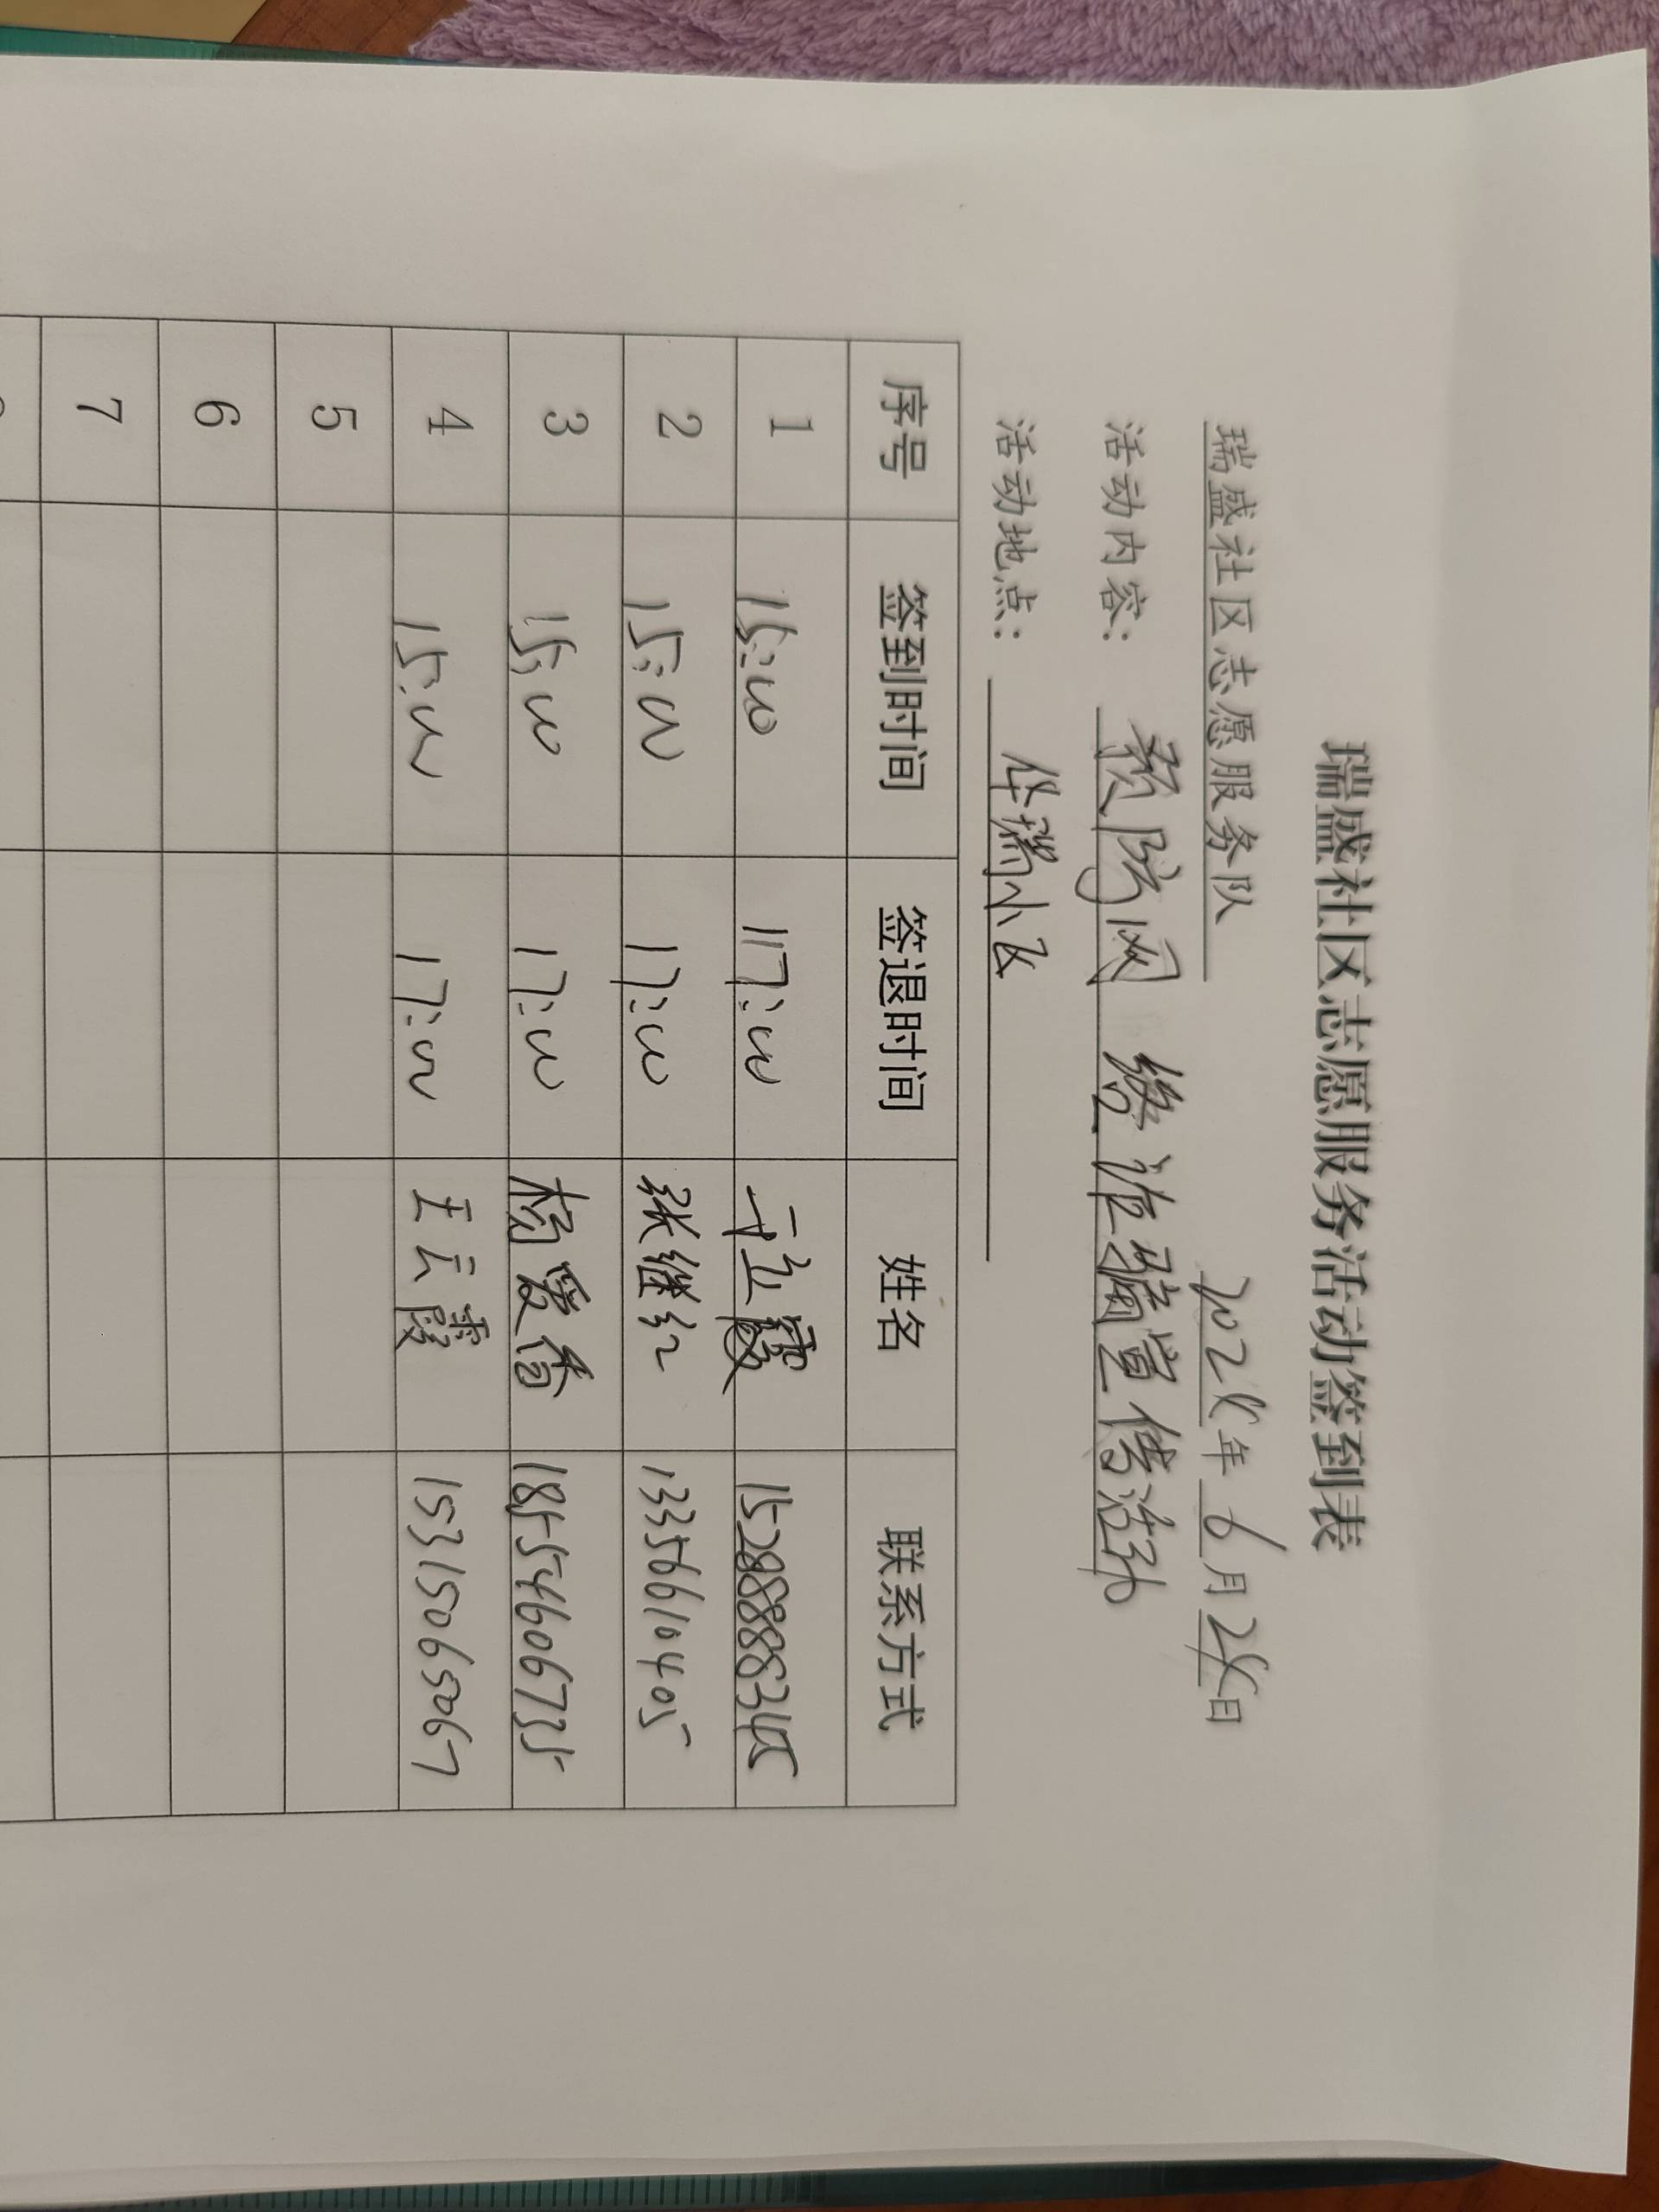 瑞盛社区志愿服务活动签到表
瑞盛社区志愿服务队 2024年6月24日
活动内容：预防网络诈骗宣传活动
活动地点：华瑞小区
序号 签到时间 签退时间 姓名 联系方式
1 15:00 17:00 于立霞 15288883145
2 15:00 17:00 张继红 13356610405
3 15:00 17:00 杨爱香 18554606735
4 15:00 17:00 王云霞 15315065067
5
6
7